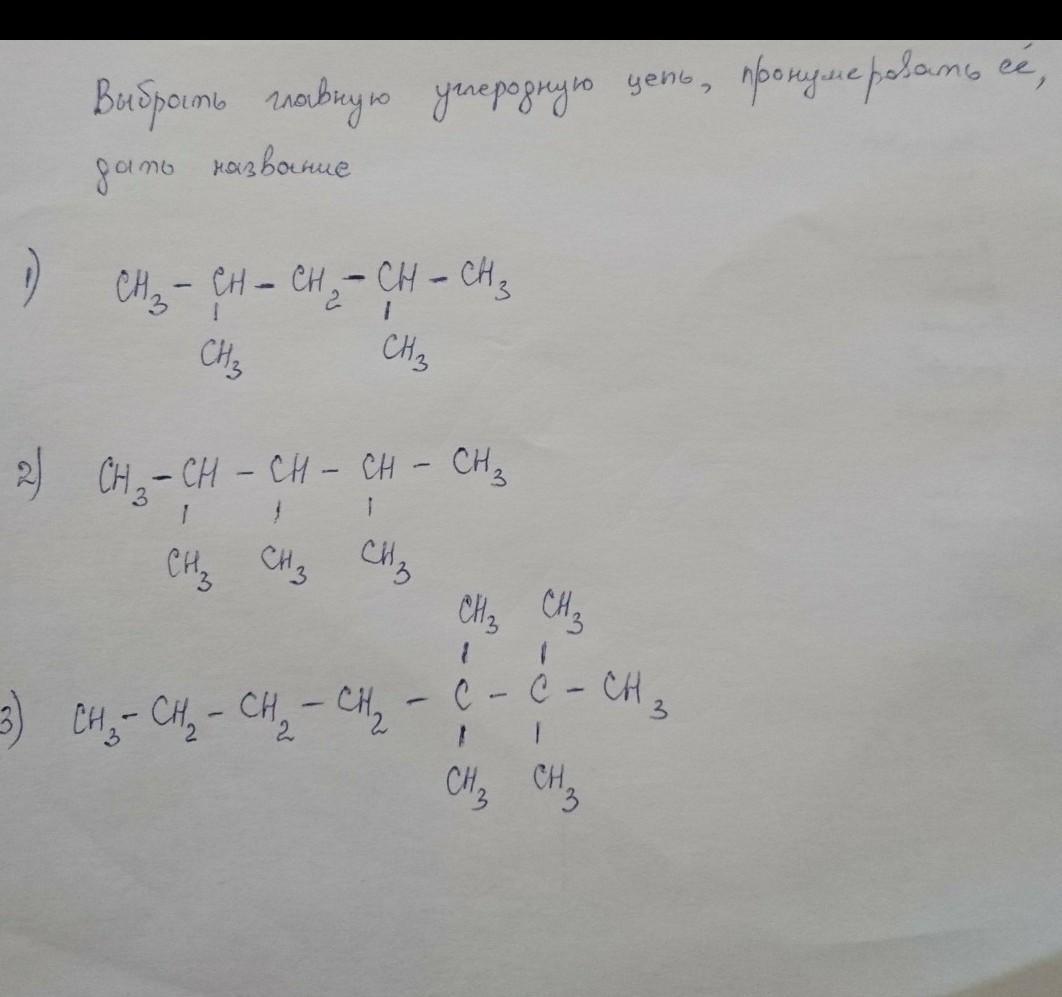 Выбрать главную углеродную цепь, пронумеровать её,
дать название
1) CH₃ – CH – CH₂ – CH – CH₃
CH₃ CH₃
2) CH₃ – CH – CH – CH – CH₃
CH₃ CH₃ CH₃
CH₃ CH₃
3) CH₃ – CH₂ – CH₂ – CH₂ – C – C – CH₃
CH₃ CH₃